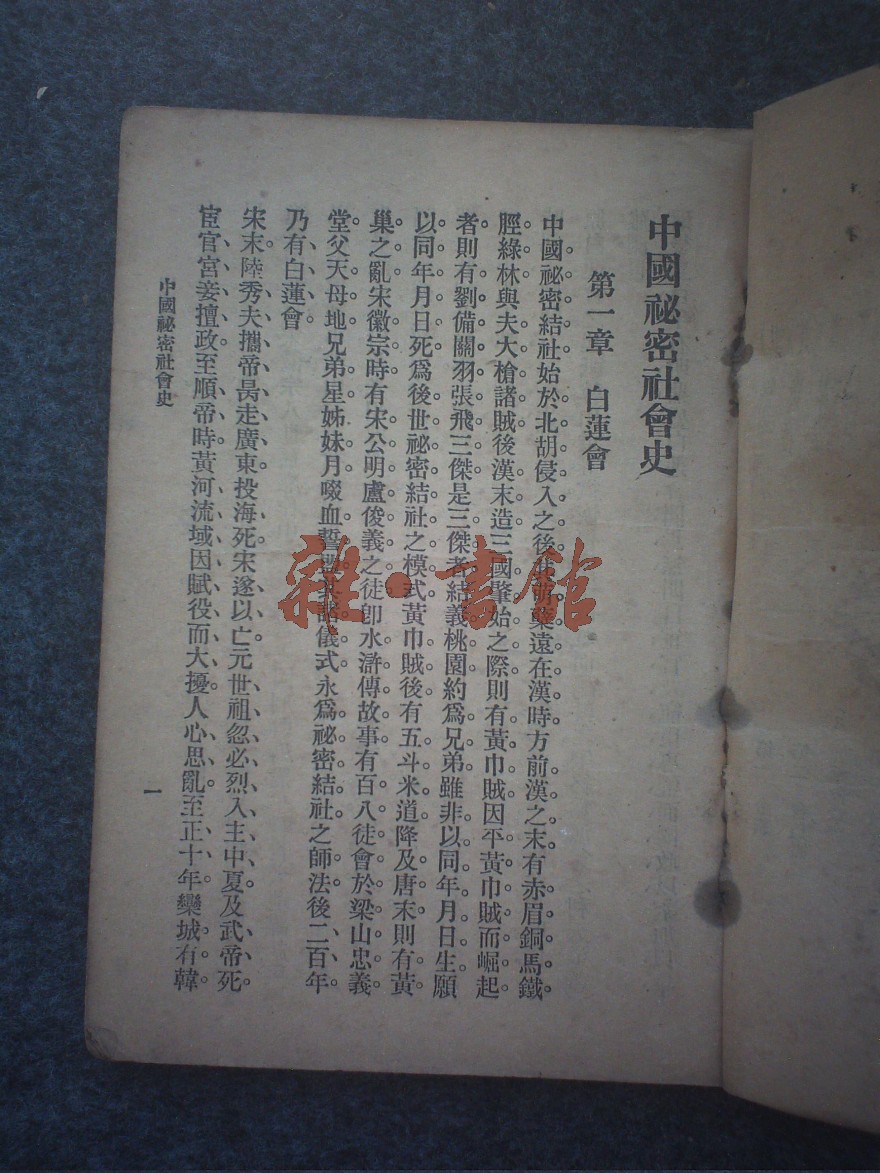 中國祕密社會史
第一章　白蓮會
中國祕密結社始於北胡侵入之後其萌蘖遠在漢時方前漢之末有赤眉銅馬鐵
脛綠林與夫大槍諸賊後漢末造三國肇始之際則有黃巾賊因平黃巾賊而崛起
者則有劉備關羽張飛三傑是三傑者結義桃園約爲兄弟雖非以同年月日生願
以同年月日死爲後世祕密結社之模式黃巾賊後有五斗米道降及唐末則有黃
巢之亂宋徽宗時有宋公明盧俊義之徒卽水滸傳故事有百八徒會於梁山忠義
堂父天母地兄弟星姊妹月啜血誓盟 儀式永爲祕密結社之師法後二百年
乃有白蓮會
宋末陸秀夫攜帝昺走廣東投海死宋遂以亡元世祖忽必烈入主中夏及武帝死
宦官宮妾擅政至順帝時黃河流域因賦役而大擾人心思亂至正十年欒城有韓
中國祕密社會史
一
雜·書館